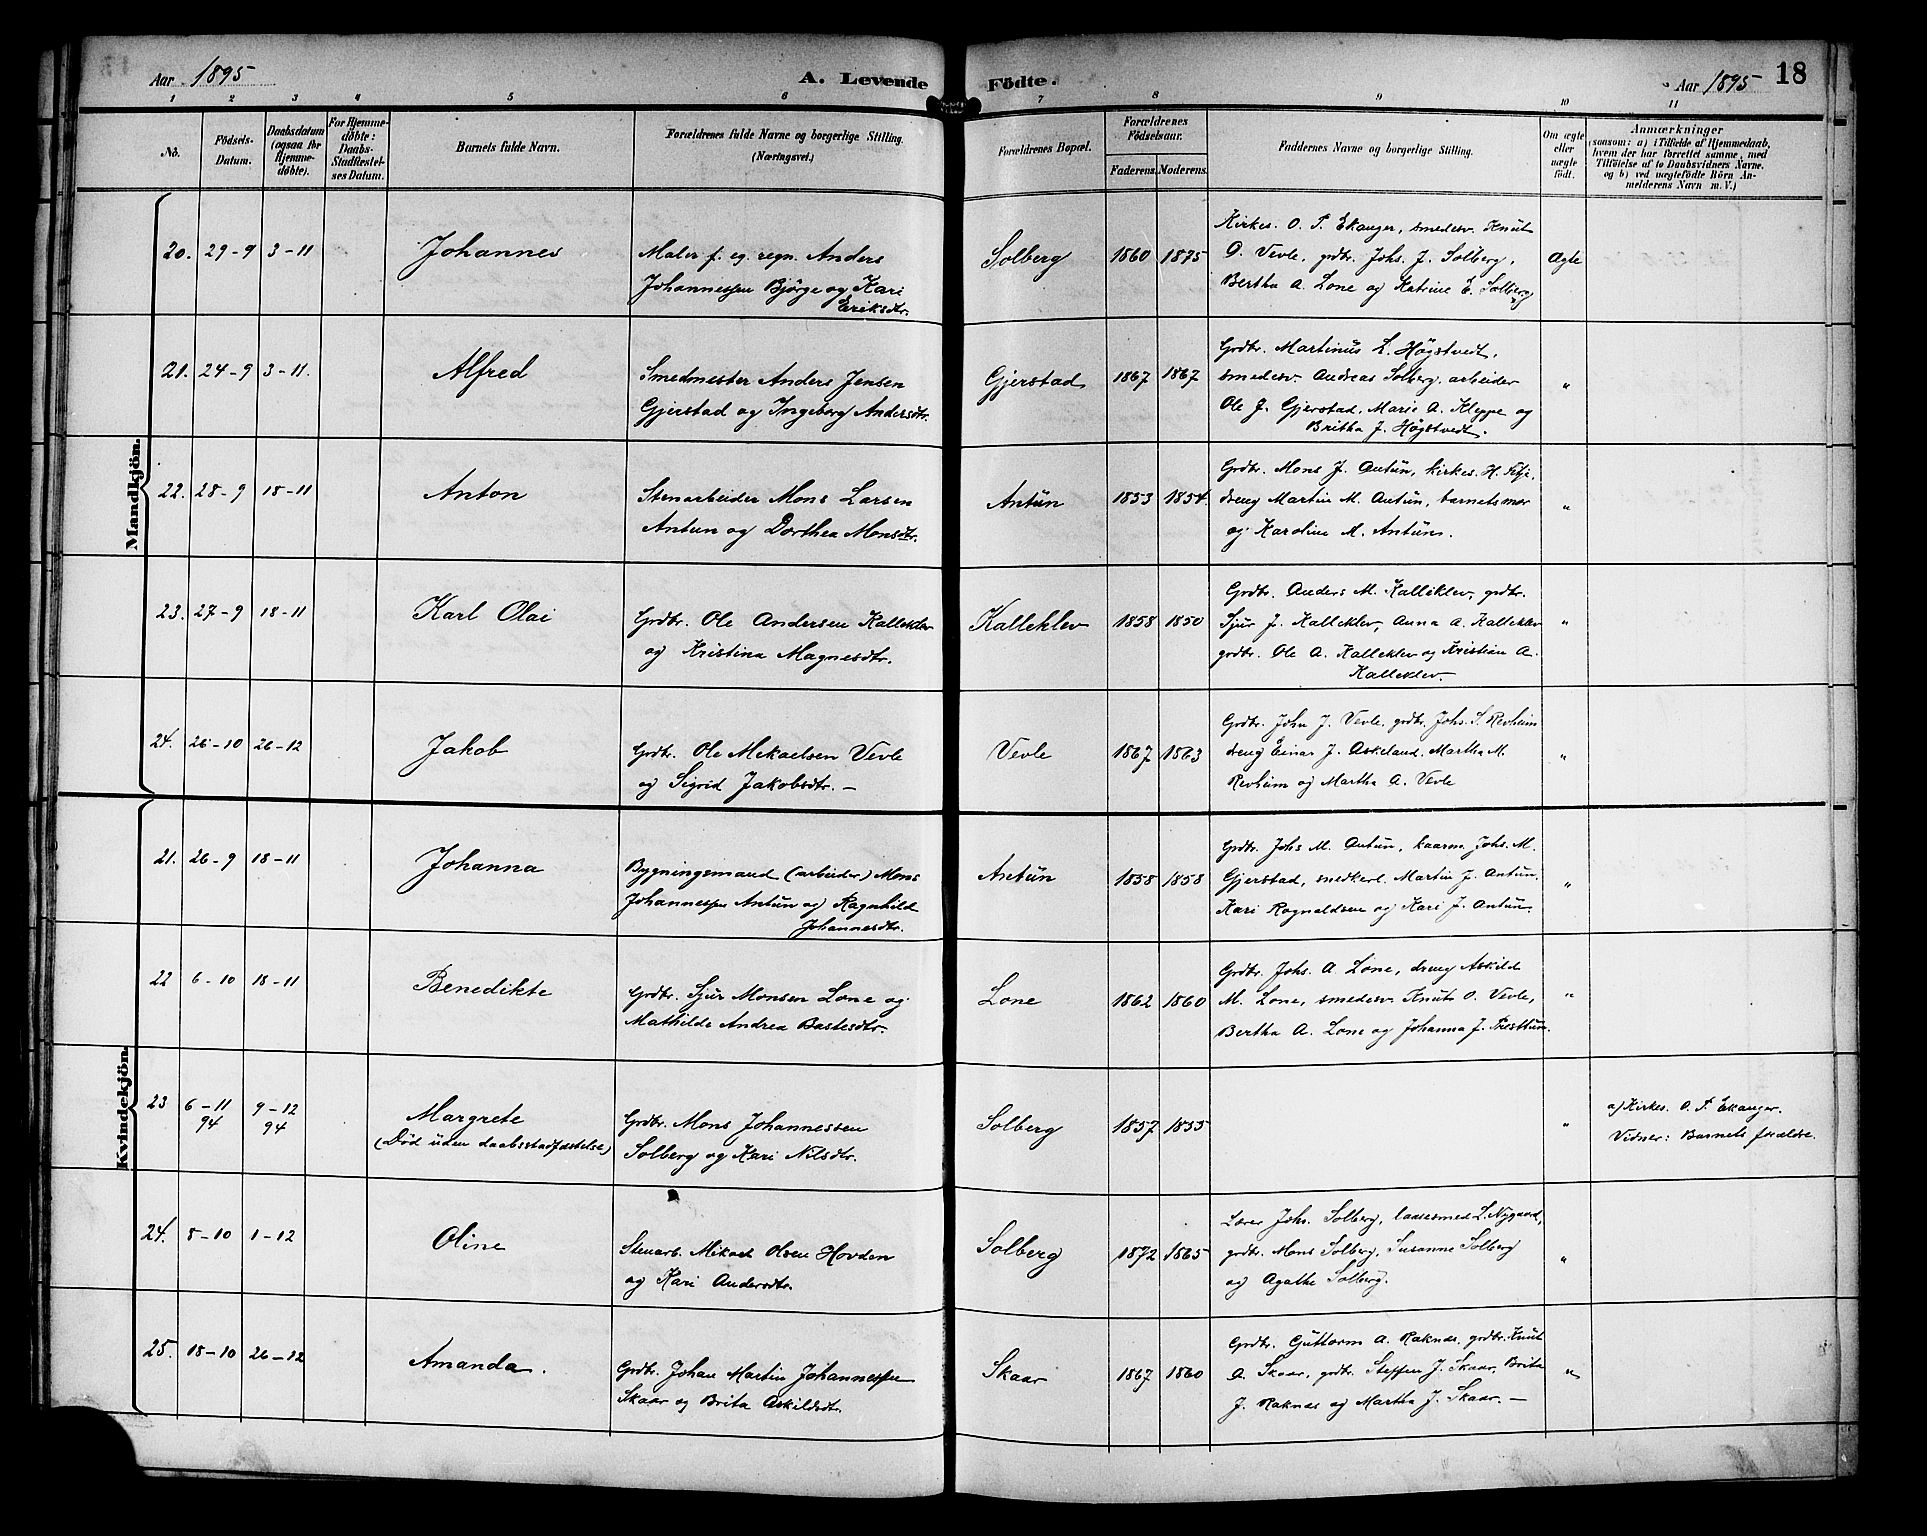 Aar 1895
A. Levende Födte.
Aar 1895
18
1 2 3 4 5 6 7 8 9 10 11
No.
Födsels-Datum.
Daabsdatum (ogsaa for Hjemme-døbte).
For Hjemme-døbte: Daabs-Stadfæstel-ses Datum.
Barnets fulde Navn.
Forældrenes fulde Navne og borgerlige Stilling.
(Næringsvei.)
Forældrenes Bopæl.
Forældrenes Födselsaar.
Faderens. Moderens.
Faddernes Navne og borgerlige Stilling.
Om ægte eller uægte födt.
Anmærkninger
(saasom: a) i Tilfælde af Hjemmedaab, hvem der har forrettet samme, med Tilföielse af to Daabsvidners Navne. og b) ved uægtefödte Börn An-melderens Navn m. V.)
Mandkjön.
20. 29-9 3-11 Johannes
Maler f. eg. regn. Anders
Johannessen Bjørge og Kari
Eriksdtr.
Solberg 1860 1875
Kirkes. O. T. Ekanger, smedesv. Knut
O. Vevle, grdbr. Johs. J. Solberg,
Bertha A. Lone og Katrine E. Solberg
Ægte
21. 24-9 3-11. Alfred
Smedmester Anders Jensen
Gjerstad og Ingeborg Andersdtr.
Gjerstad 1867 1867
Grdbr. Martinus L. Høgstvedt,
smedesv. Andreas Solberg, arbeider
Ole J. Gjerstad, Marie A. Kleppe og
Britha J. Høgstvedt.
"
22. 28-9 18-11 Anton
Stenarbeider Mons Larsen
Antun og Dorthea Monsdtr.
Antün 1853 1854.
Grdbr. Mons J. Antün, kirkes. H.
dreng Martin M. Antün, barnets mor
og Karoline M. Antün.
"
23. 27-9 18-11 Karl Olai
Grdbr. Ole Andersen Kalleklev
og Kristina Magnesdtr.
Kalleklev 1858 1850
Grdbr. Anders M. Kalleklev, grdbr.
Sjur J. Kalleklev, Anna A. Kalleklev
grdbr. Ole A. Kalleklev og Kristian A.
Kalleklev.
"
24. 26-10 26-12 Jakob
Grdbr. Ole Mekaelsen Vevle
og Sigrid Jakobsdtr. –
Vevle 1867 1863
Grdbr. John J. Vevle, grdbr. Johs. S. Revheim
dreng Einar J. Askeland, Martha M.
Revheim og Martha A. Vevle
"
Kvindekjön.
21. 26-9 18-11 Johanna
Bygningsmand (arbeider) Mons
Johannessen Antün og Ragnhild
Johannesdtr.
Antün 1858 1858
Grdbr. Johs M. Antün, kaarm. Johs. M.
Gjerstad, smedkerl. Martin J. Antün.
Kari Ragnaldsen og Kari J. Antün.
"
22 6-10 18-11 Benedikte
Grdbr. Sjur Monsen Lone og
Mathilde Andrea Bastesdtr.
Lone 1862 1860
Grdbr. Johs. A. Lone, dreng Askild
M. Lone, smedesv. Knut O. Vevle,
Bertha A. Lone og Johanna J. Presttun.
"
23 6-11 94 9-12 94 Margrete
(Død uden daabsstadfæstelse)
Grdbr. Mons Johannessen
Solberg og Kari Nilsdtr.
Solberg 1857 1855
"
a) Kirkes. O. T. Ekanger.
Vidner: Barnets forældre.
24. 8-10 1-12 Oline
Stenarb. Mikael Olsen Hovden
og Kari Andersdtr.
Solberg 1872 1865
Lærer Johs. Solberg, laasesmed L. Nygaard,
grdbr. Mons Solberg, Susanne Solberg
og Agathe Solberg.
"
25. 18-10 26-12 Amanda.
Grdbr. Johan Martin Johannessen
Skaar og Brita Askildsdtr.
Skaar 1867 1860
Grdbr. Guttorm A. Raknæs, grdbr. Knut
A. Skaar, grdbr. Steffen J. Skaar, Brita
J. Raknæs og Martha J. Skaar. –
"